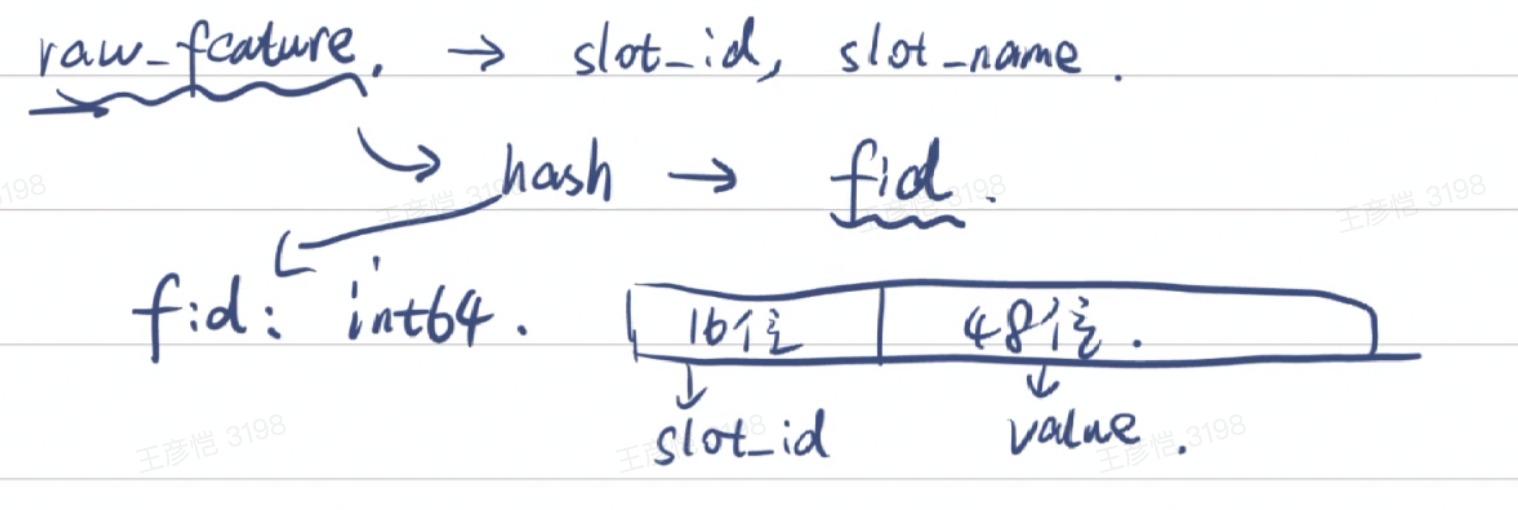 raw_feature. → slot_id, slot_name.
hash → fid.
fid: int64. 16位 48位.
slot_id value.
王彦恺 3198
王彦恺 3198
王彦恺 3198
王彦恺 3198
王彦恺 3198
王彦恺 3198